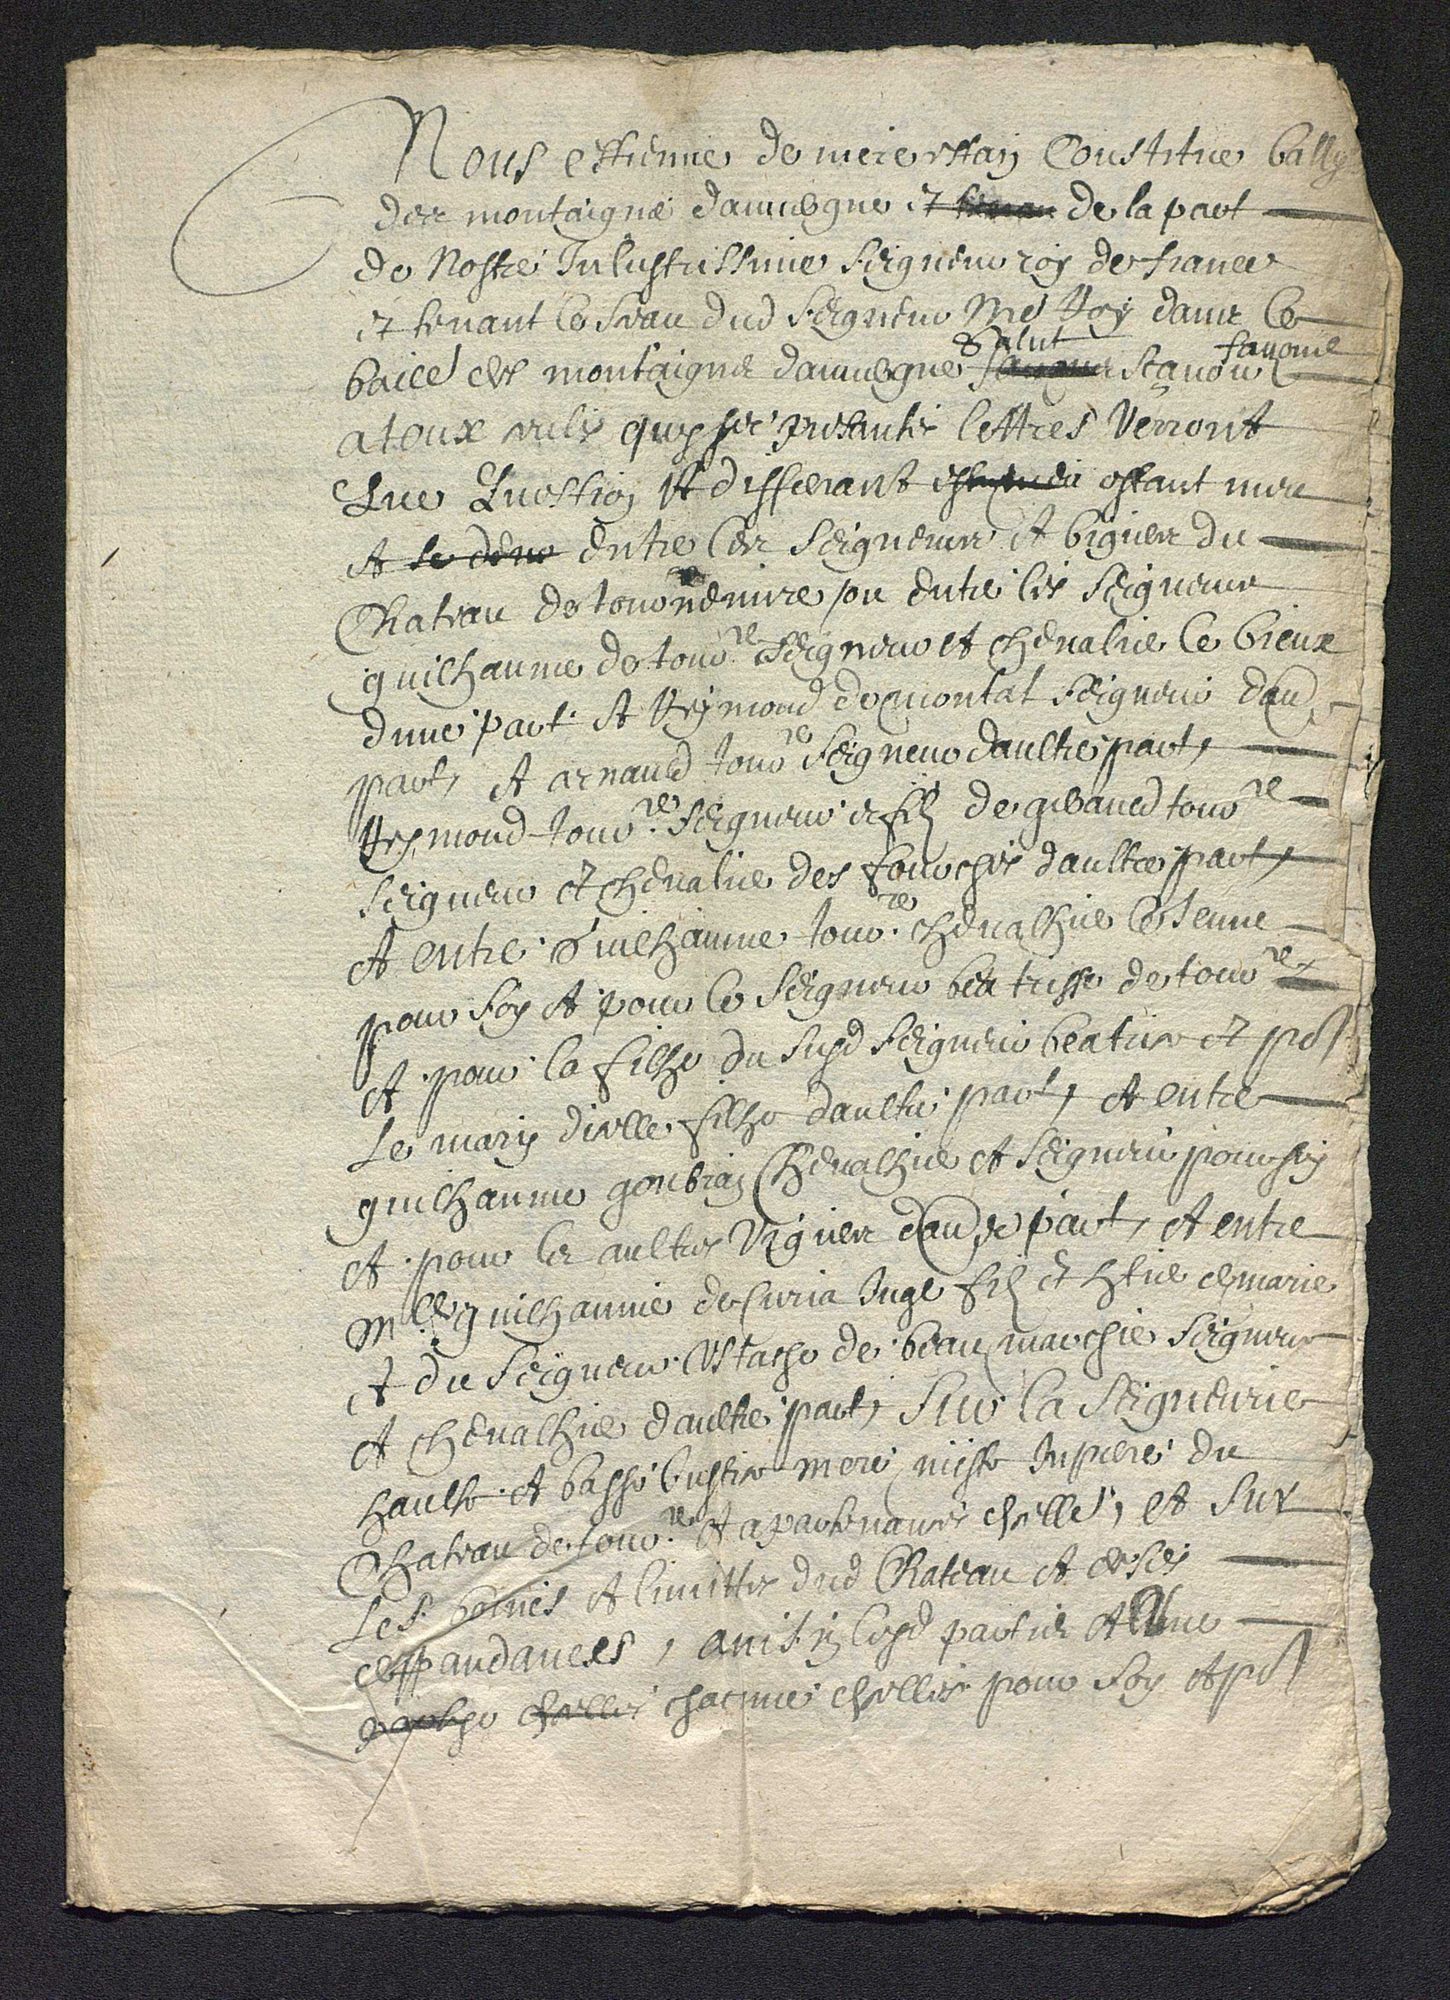 Nous estienne de mere estan Constitue bally
des montaigne dauvergne et tenan de la part
de Nostre Inlustrissime seigneur roy de france
et tenant le seau dud seigneur Me Roy dans le
baile des montaignes dauvergne salut scavoir faisons
a toux ceulx quy ses presantes lettres verront
Que Question et differant estant meu
et entre les seigneurs et viguier du
Chateau de tournemire ou entre les seigneurs
guilhaume de tour.re seigneur et chevalier le vieux
dune part et Reymond de montal seigneur dau
part, et arnauld tour.re seigneur daultre part,
Reymond tour.re seigneur et fils de giraud tour.re
seigneur et chevalier des fourches daultre part,
et entre Guilhaume tour.re chevalhier le Jeune
pour soy et pour le seigneur beatrisse de tour.re
et pour la filhe du susd seigneur beatrix et pr
Le mary dicelle filhe daultre part, et entre
guilhaume gonbiay Chevalhier et seigneur pour soy
et pour les aultres viguier dau.re part, et entre
M.e guilhaume de Curia Juge fils et h.tier de marie
et du seigneur Ustache de beaumarchie seigneur
et chevalhier daultre part, sur la seigneurie
haulte et basse Justice mere miste Inpiere du
Chateau de tour.re et apartenances dicelles, et sur
Les bornes et limittes dud Chateau et de ses
deppandances, lesd parties et Une
chacune dicelles pour soy et pr